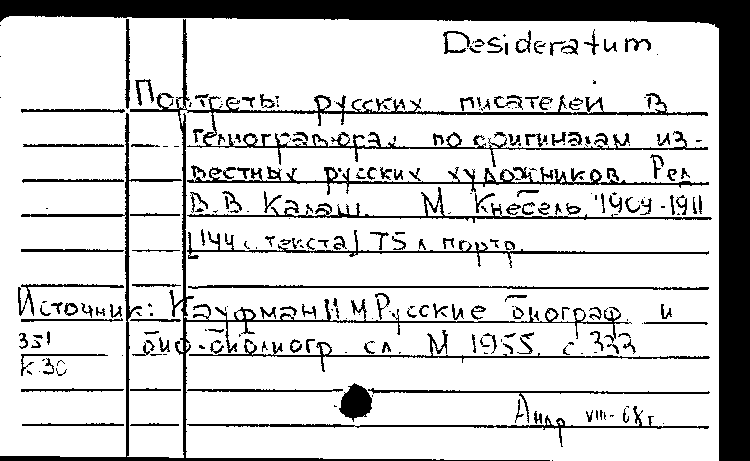 Desideratum
Портреты русских писателей в
гелиогравюрах по оригиналам из-
вестных русских художников. Ред.
В.В. Калаш. М. Кнебель, 1909-1911
[144 с. текста] 75 л. портр.
Источник: Кауфман И М Русские биограф. и
351 био-библиогр. сл. М, 1955. с. 333
К 30
Андр. VIII-68 г.